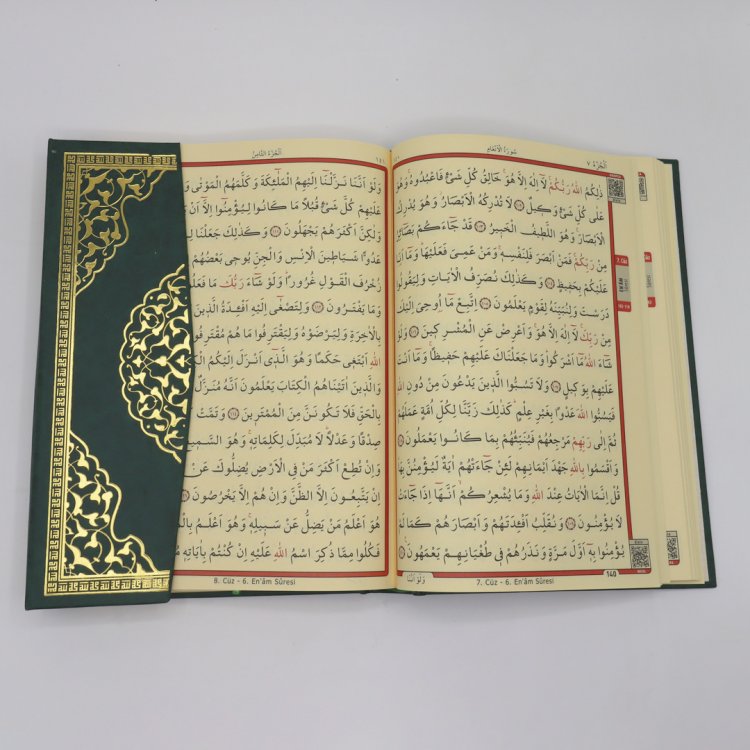 اَلْجُزْءُ ٧ سُورَةُ الْاَنْعَامِ
ذٰلِكُمُ اللّٰهُ رَبُّكُمْۚ لَٓا اِلٰهَ اِلَّا هُوَۚ خَالِقُ كُلِّ شَيْءٍ فَاعْبُدُوهُۚ وَهُوَ
عَلٰى كُلِّ شَيْءٍ وَك۪يلٌ ﴿١٠٢﴾ لَا تُدْرِكُهُ الْاَبْصَارُۘ وَهُوَ يُدْرِكُ
الْاَبْصَارَۚ وَهُوَ اللَّط۪يفُ الْخَب۪يرُ ﴿١٠٣﴾ قَدْ جَٓاءَكُمْ بَصَٓائِرُ
مِنْ رَبِّكُمْۚ فَمَنْ اَبْصَرَ فَلِنَفْسِه۪ۚ وَمَنْ عَمِيَ فَعَلَيْهَاۜ وَمَٓا اَنَا۬
عَلَيْكُمْ بِحَف۪يظٍ ﴿١٠٤﴾ وَكَذٰلِكَ نُصَرِّفُ الْاٰيَاتِ وَلِيَقُولُوا
دَرَسْتَ وَلِنُبَيِّنَهُ لِقَوْمٍ يَعْلَمُونَ ﴿١٠٥﴾ اِتَّبِعْ مَٓا اُو۫حِيَ اِلَيْكَ
مِنْ رَبِّكَۚ لَٓا اِلٰهَ اِلَّا هُوَۚ وَاَعْرِضْ عَنِ الْمُشْرِك۪ينَ ﴿١٠٦﴾ وَلَوْ
شَٓاءَ اللّٰهُ مَٓا اَشْرَكُواۜ وَمَا جَعَلْنَاكَ عَلَيْهِمْ حَف۪يظًاۚ وَمَٓا اَنْتَ
عَلَيْهِمْ بِوَك۪يلٍ ﴿١٠٧﴾ وَلَا تَسُبُّوا الَّذ۪ينَ يَدْعُونَ مِنْ دُونِ اللّٰهِ
فَيَسُبُّوا اللّٰهَ عَدْوًا بِغَيْرِ عِلْمٍۜ كَذٰلِكَ زَيَّنَّا لِكُلِّ اُمَّةٍ عَمَلَهُمْ
ثُمَّ اِلٰى رَبِّهِمْ مَرْجِعُهُمْ فَيُنَبِّئُهُمْ بِمَا كَانُوا يَعْمَلُونَ ﴿١٠٨﴾
وَاَقْسَمُوا بِاللّٰهِ جَهْدَ اَيْمَانِهِمْ لَئِنْ جَٓاءَتْهُمْ اٰيَةٌ لَيُؤْمِنُنَّ بِهَاۜ
قُلْ اِنَّمَا الْاٰيَاتُ عِنْدَ اللّٰهِ وَمَا يُشْعِرُكُمْۙ اَنَّهَٓا اِذَا جَٓاءَتْ
لَا يُؤْمِنُونَ ﴿١٠٩﴾ وَنُقَلِّبُ اَفْـِٔدَتَهُمْ وَاَبْصَارَهُمْ كَمَا لَمْ
يُؤْمِنُوا بِه۪ٓ اَوَّلَ مَرَّةٍ وَنَذَرُهُمْ ف۪ي طُغْيَانِهِمْ يَعْمَهُونَ ﴿١١٠﴾
وَلَوْ اَنَّنَا
7. Cüz - 6. En'âm Sûresi
140
7. Cüz
اَلْجُزْءُ الثَّامِنُ
وَلَوْ اَنَّنَا نَزَّلْنَٓا اِلَيْهِمُ الْمَلٰٓئِكَةَ وَكَلَّمَهُمُ الْمَوْتٰى
عَلَيْهِمْ كُلَّ شَيْءٍ قُبُلًا مَا كَانُوا لِيُؤْمِنُٓوا اِلَّٓا اَنْ
وَلٰكِنَّ اَكْثَرَهُمْ يَجْهَلُونَ ﴿١١١﴾ وَكَذٰلِكَ جَعَلْنَا
عَدُوًّا شَيَاط۪ينَ الْاِنْسِ وَالْجِنِّ يُوح۪ي بَعْضُهُمْ
زُخْرُفَ الْقَوْلِ غُرُورًاۜ وَلَوْ شَٓاءَ رَبُّكَ مَا
وَمَا يَفْتَرُونَ ﴿١١٢﴾ وَلِتَصْغٰٓى اِلَيْهِ اَفْـِٔدَةُ الَّذ۪ينَ
بِالْاٰخِرَةِ وَلِيَرْضَوْهُ وَلِيَقْتَرِفُوا مَا هُمْ
اللّٰهِ اَبْتَغ۪ي حَكَمًا وَهُوَ الَّذ۪ٓي اَنْزَلَ اِلَيْكُمُ
وَالَّذ۪ينَ اٰتَيْنَاهُمُ الْكِتَابَ يَعْلَمُونَ اَنَّهُ مُنَزَّلٌ
بِالْحَقِّ فَلَا تَكُونَنَّ مِنَ الْمُمْتَر۪ينَ ﴿١١٤﴾ وَتَمَّتْ
صِدْقًا وَعَدْلًاۜ لَا مُبَدِّلَ لِكَلِمَاتِه۪ۚ وَهُوَ
وَاِنْ تُطِعْ اَكْثَرَ مَنْ فِي الْاَرْضِ يُضِلُّوكَ عَنْ
اِنْ يَتَّبِعُونَ اِلَّا الظَّنَّ وَاِنْ هُمْ اِلَّا يَخْرُصُونَ
هُوَ اَعْلَمُ مَنْ يَضِلُّ عَنْ سَب۪يلِه۪ۚ وَهُوَ اَعْلَمُ
فَكُلُوا مِمَّا ذُكِرَ اسْمُ اللّٰهِ عَلَيْهِ اِنْ كُنْتُمْ بِاٰيَاتِه۪
8. Cüz - 6. En'âm Sûresi